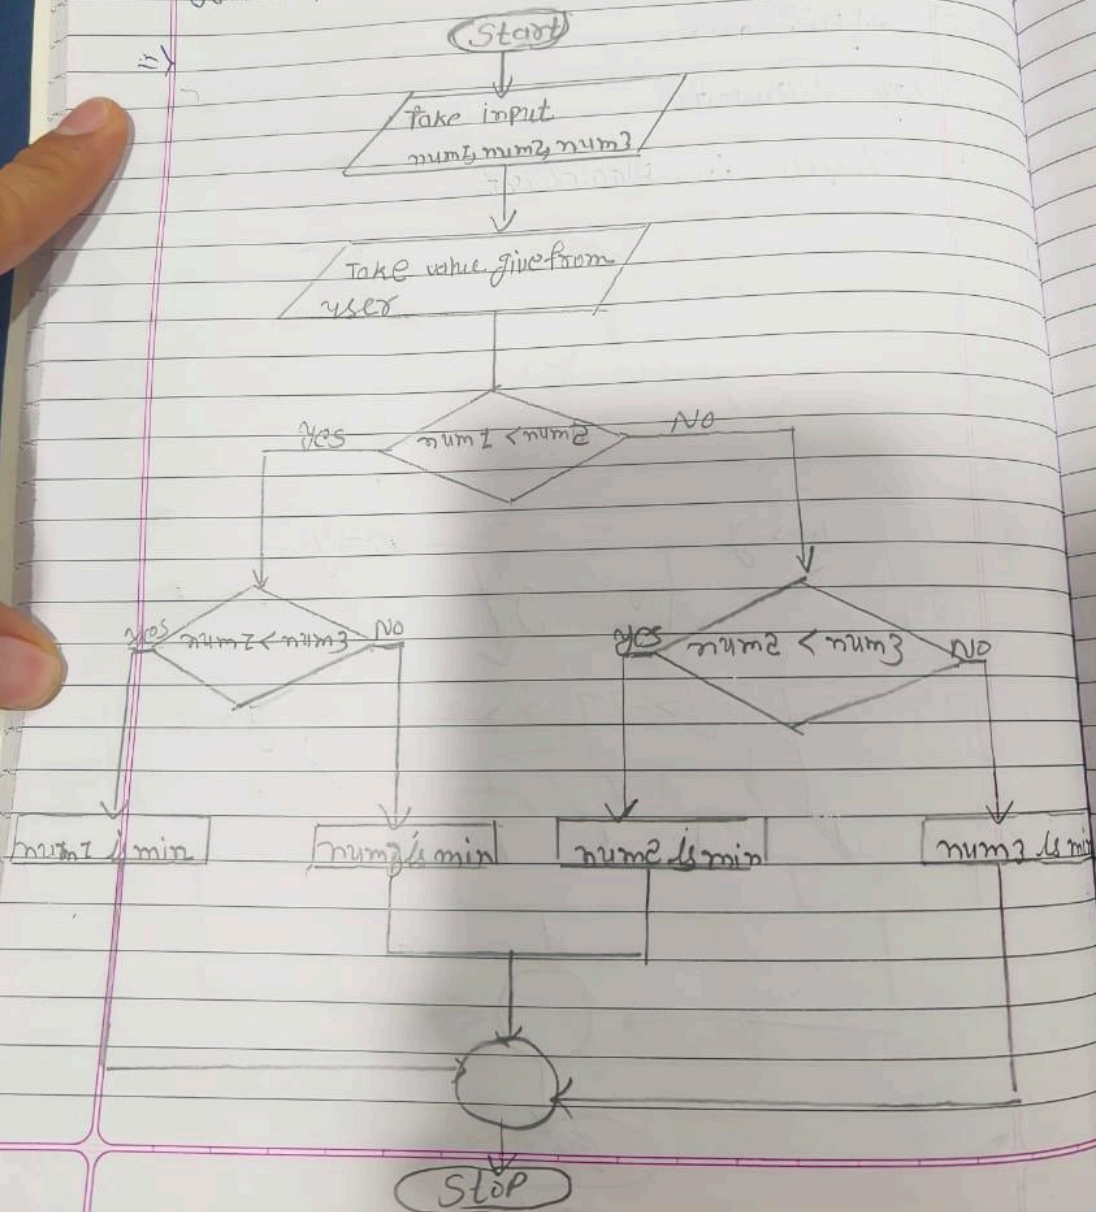 ii)
Start
Take input
num1, num2, num3
Take value give from
user
num1 < num2
Yes
No
num1 < num3
Yes
No
num2 < num3
Yes
No
num1 is min
num3 is min
num2 is min
num3 is min
Stop